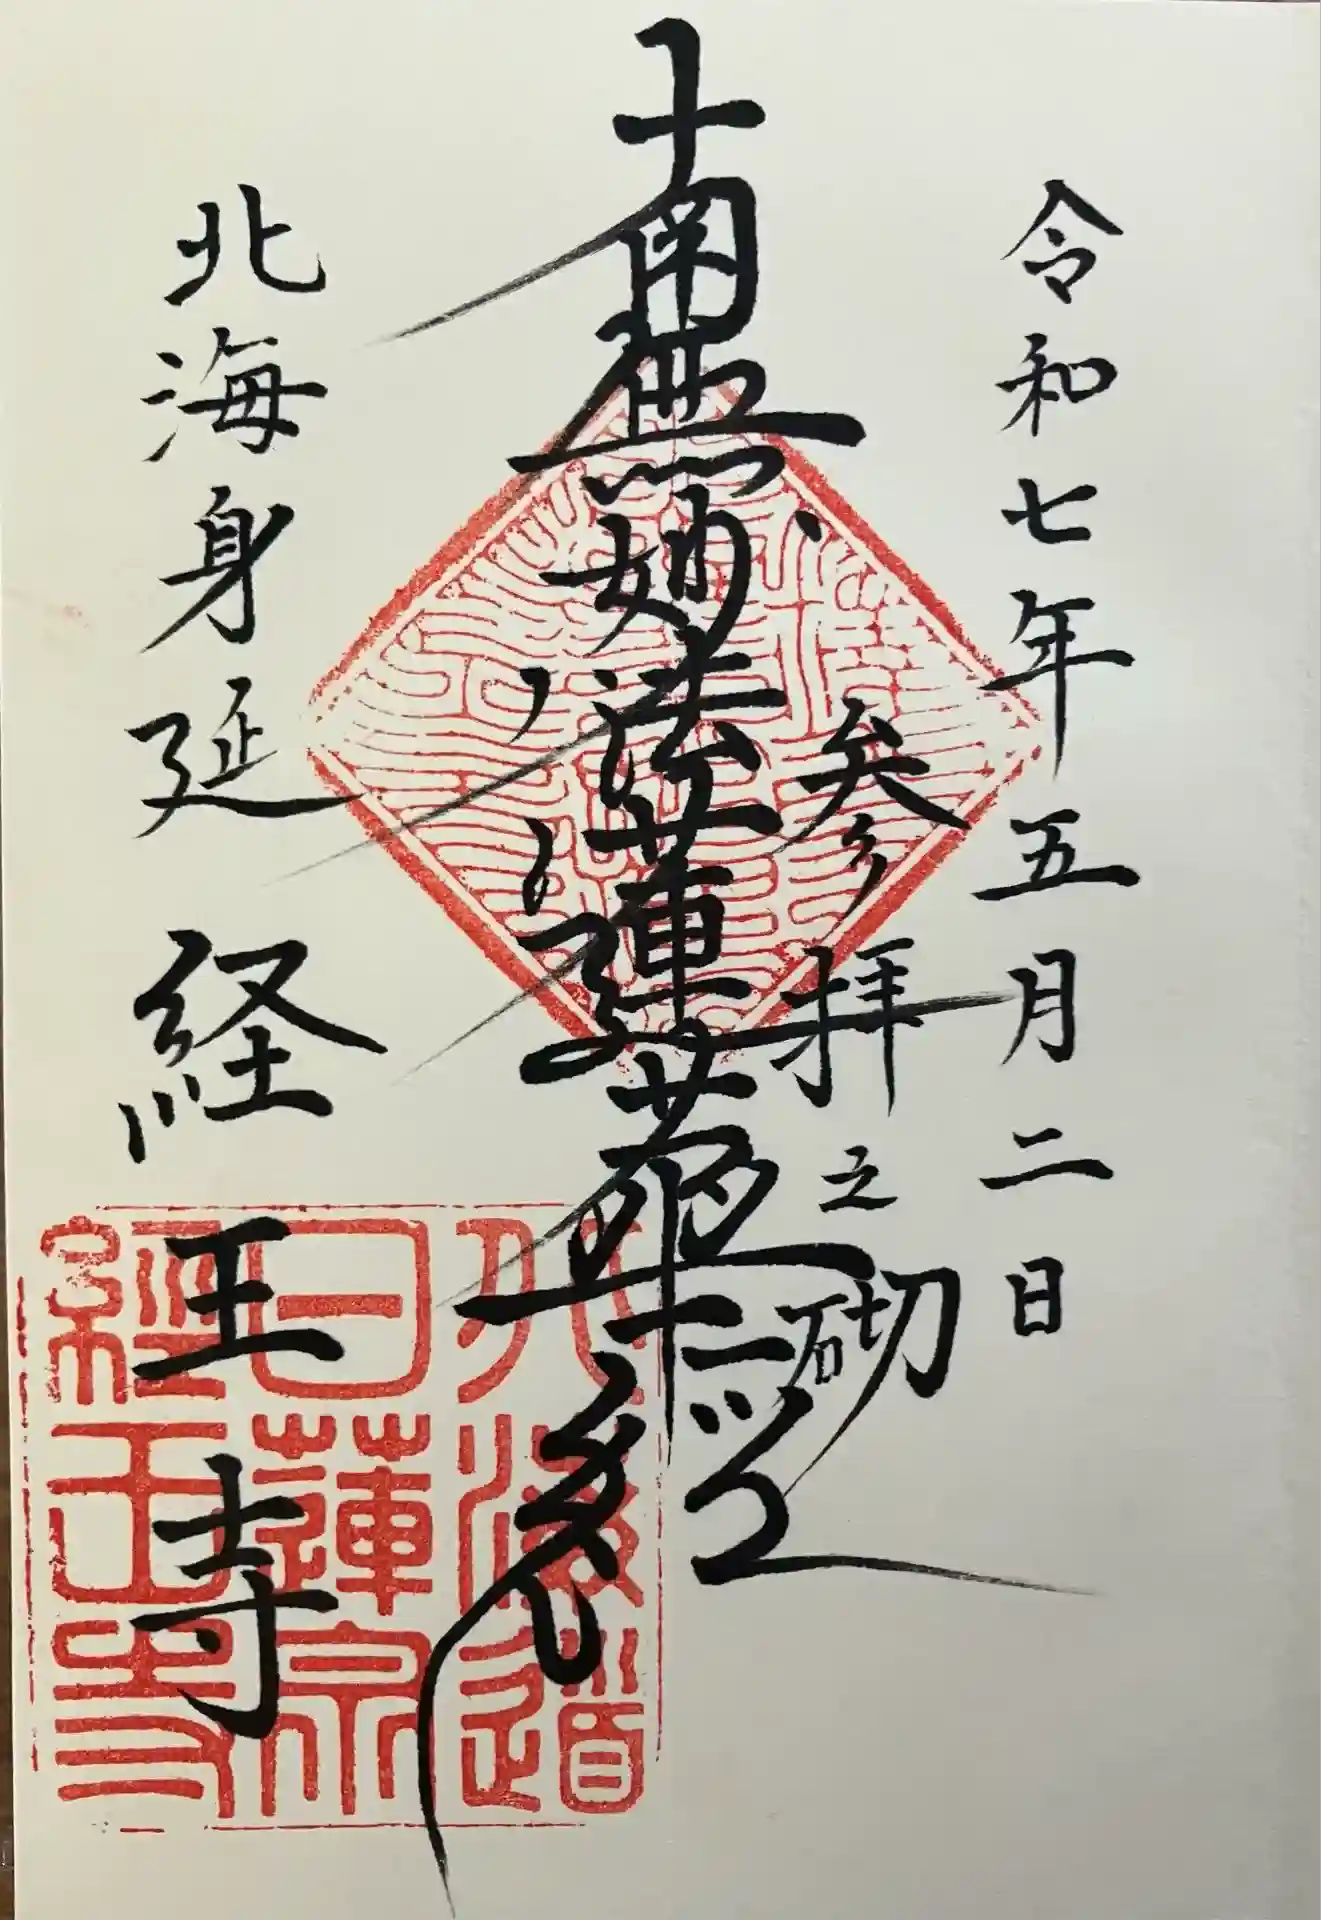 令和七年五月二日
参拝之砌
南無妙法蓮華経
北海身延
経王寺
北海道
日蓮宗
經王寺